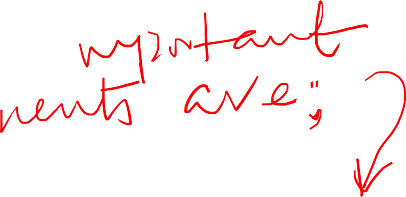 mportant
nents are:,